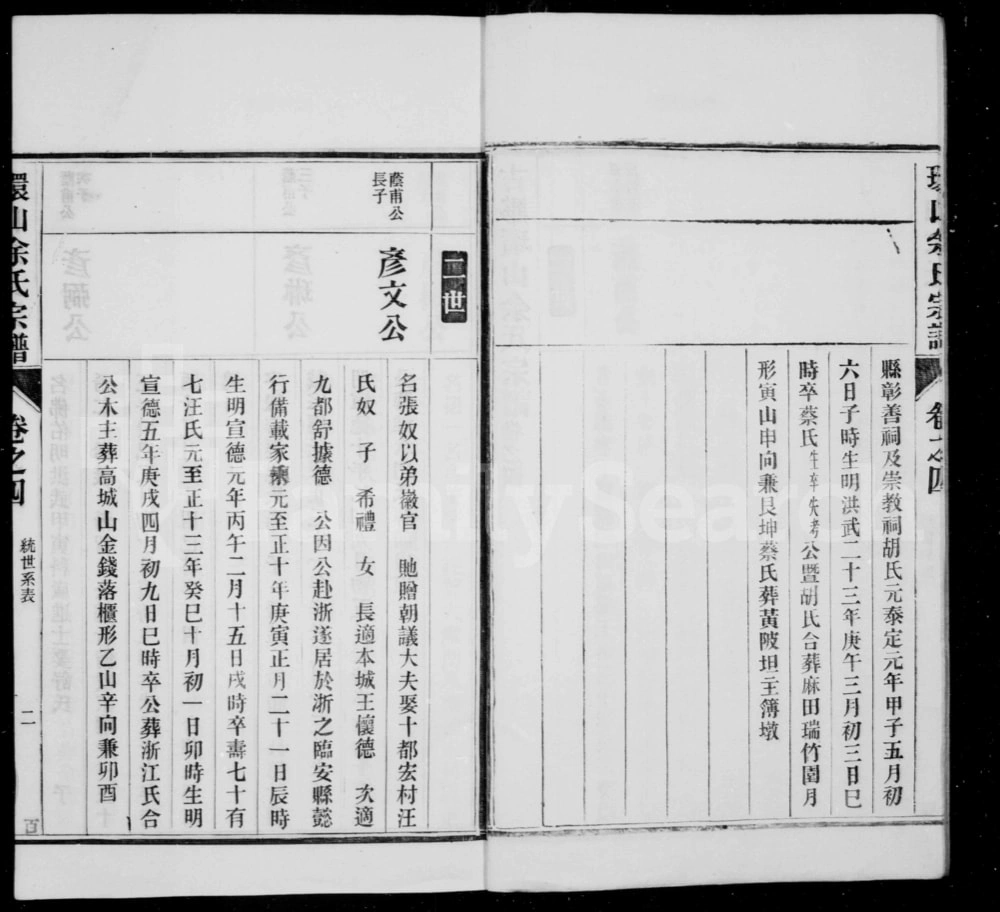 環山余氏宗譜
卷之四
縣彰善祠及崇教祠胡氏元泰定元年甲子五月初
六日子時生明洪武二十三年庚午三月初三日巳
時卒蔡氏生卒佚考公暨胡氏合葬麻田瑞竹園月
形寅山申向兼艮坤蔡氏葬黃陂坦主簿墩
二世
蔭甫公
長子
彥文公
名張奴以弟嶽官 貤贈朝議大夫娶十都宏村汪
氏奴 子 希禮 女 長適本城王懷德 次適
九都舒據德 公因公赴浙遂居於浙之臨安縣懿
行備載家乘元至正十年庚寅正月二十一日辰時
生明宣德元年丙午二月十五日戌時卒壽七十有
七汪氏元至正十三年癸巳十月初一日卯時生明
宣德五年庚戌四月初九日巳時卒公葬浙江氏合
公木主葬高城山金錢落櫃形乙山辛向兼卯酉
環山余氏宗譜
卷之四
統世系表
二
百
FamilySearch